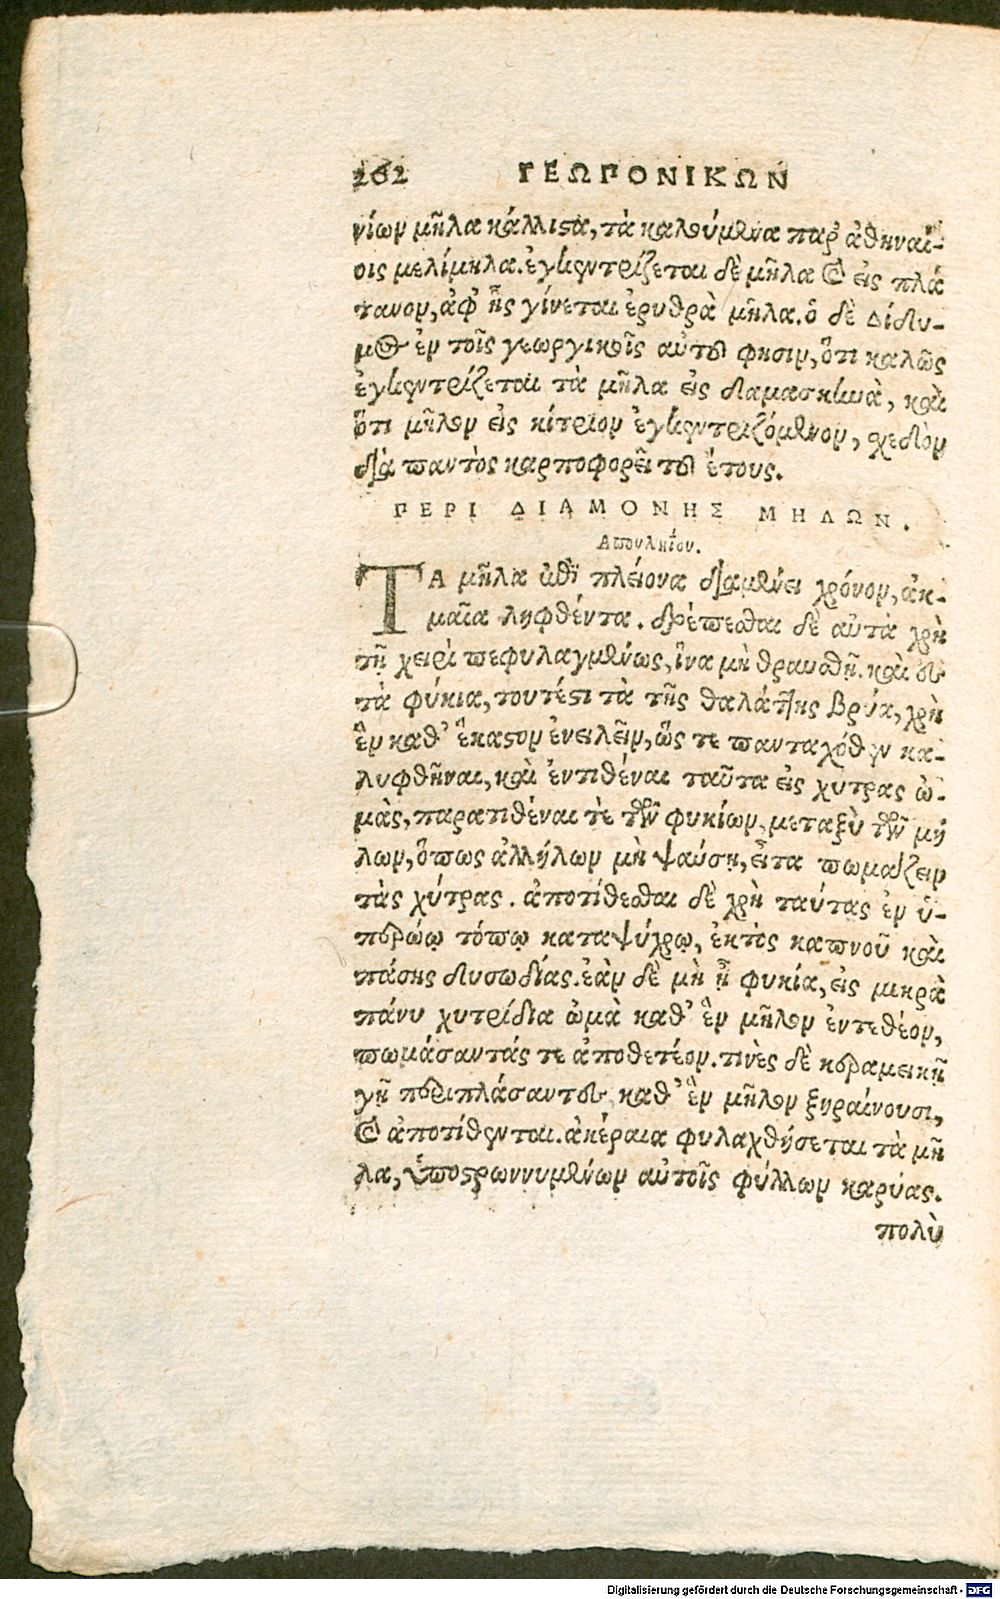 262 ΓΕΩΠΟΝΙΚΩΝ
νίων μῆλα κάλλιϛα, τὰ καλούμενα παρ᾽ ἀθηναί-
οις μελίμηλα. ἐγκεντρίζεται δὲ μῆλα καὶ εἰς πλά
τανον, ἀφ᾽ ἧς γίνεται ἐρυθρὰ μῆλα. ὁ δὲ Δίδυ-
μος ἐν τοῖς γεωργικοῖς αὐτοῦ φησιν, ὅτι καλῶς
ἐγκεντρίζεται τὰ μῆλα εἰς δαμασκηνὰ, καὶ
ὅτι μῆλον εἰς κίτριον ἐγκεντριζόμενον, σχεδὸν
διὰ παντὸς καρποφορεῖ τοῦ ἔτους.
ΠΕΡΙ ΔΙΑΜΟΝΗΣ ΜΗΛΩΝ.
Απουληίου.
ΤΑ μῆλα ἐπὶ πλείονα διαμένει χρόνον, ἀκ-
μαῖα ληφθέντα. δρέπεσθαι δὲ αὐτὰ χρὴ
τῇ χειρὶ πεφυλαγμένως, ἵνα μὴ θραυσθῇ. καὶ δὴ
τὰ φύκια, τουτέϛι τὰ τῆς θαλάττης βρύα, χρὴ
ἓν καθ᾽ ἕκαϛον ἐνειλεῖν, ὥς τε πανταχόθεν κα-
λυφθῆναι, καὶ ἐντιθέναι ταῦτα εἰς χύτρας ὠ-
μὰς, παρατιθέναι τὲ τῶν φυκίων, μεταξὺ τῶν μή
λων, ὅπως ἀλλήλων μὴ ψαύσῃ, εἶτα πωμάζειν
τὰς χύτρας. ἀποτίθεσθαι δὲ χρὴ ταύτας ἐν ὑ-
περώῳ τόπῳ καταψύχρῳ, ἐκτὸς καπνοῦ καὶ
πάσης δυσωδίας. ἐὰν δὲ μὴ ᾖ φυκία, εἰς μικρὰ
πάνυ χυτρίδια ὠμὰ καθ᾽ ἓν μῆλον ἐντεθέον,
πωμάσαντάς τε ἀποθετέον. τινὲς δὲ κεραμεικῇ
γῇ περιπλάσαντες καθ᾽ ἓν μῆλον ξηραίνουσι,
καὶ ἀποτίθενται. ἀκέραια φυλαχθήσεται τὰ μῆ
λα, ὑποϛρωννυμένων αὐτοῖς φύλλων καρύας.
πολὺ
Digitalisierung gefördert durch die Deutsche Forschungsgemeinschaft - DFG